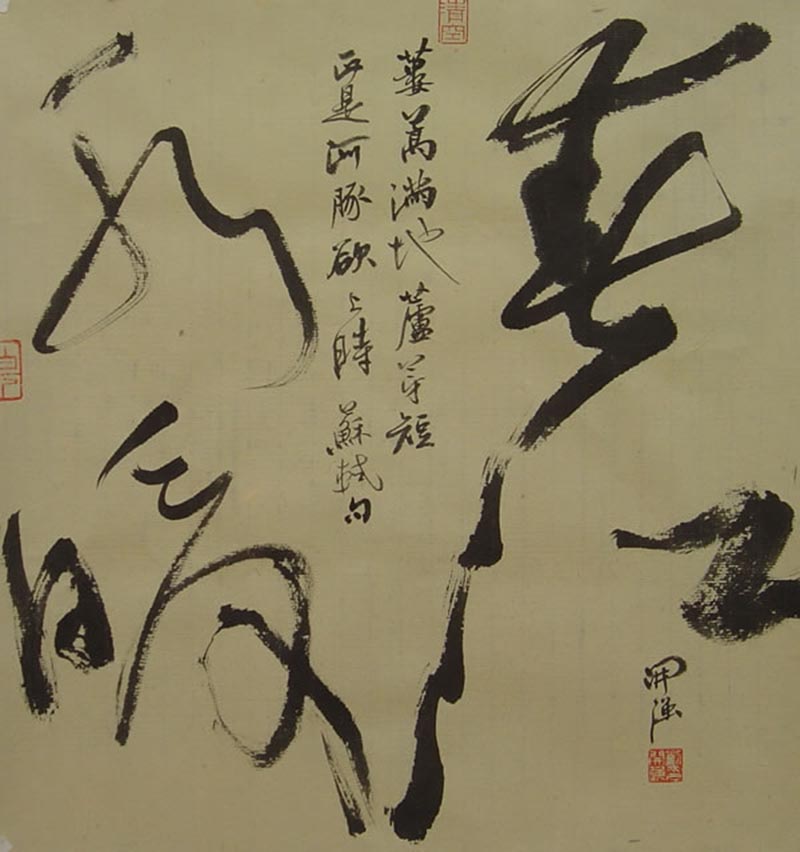 春江
水暖
蔞蒿滿地蘆芽短
正是河豚欲上時 蘇軾句
開強